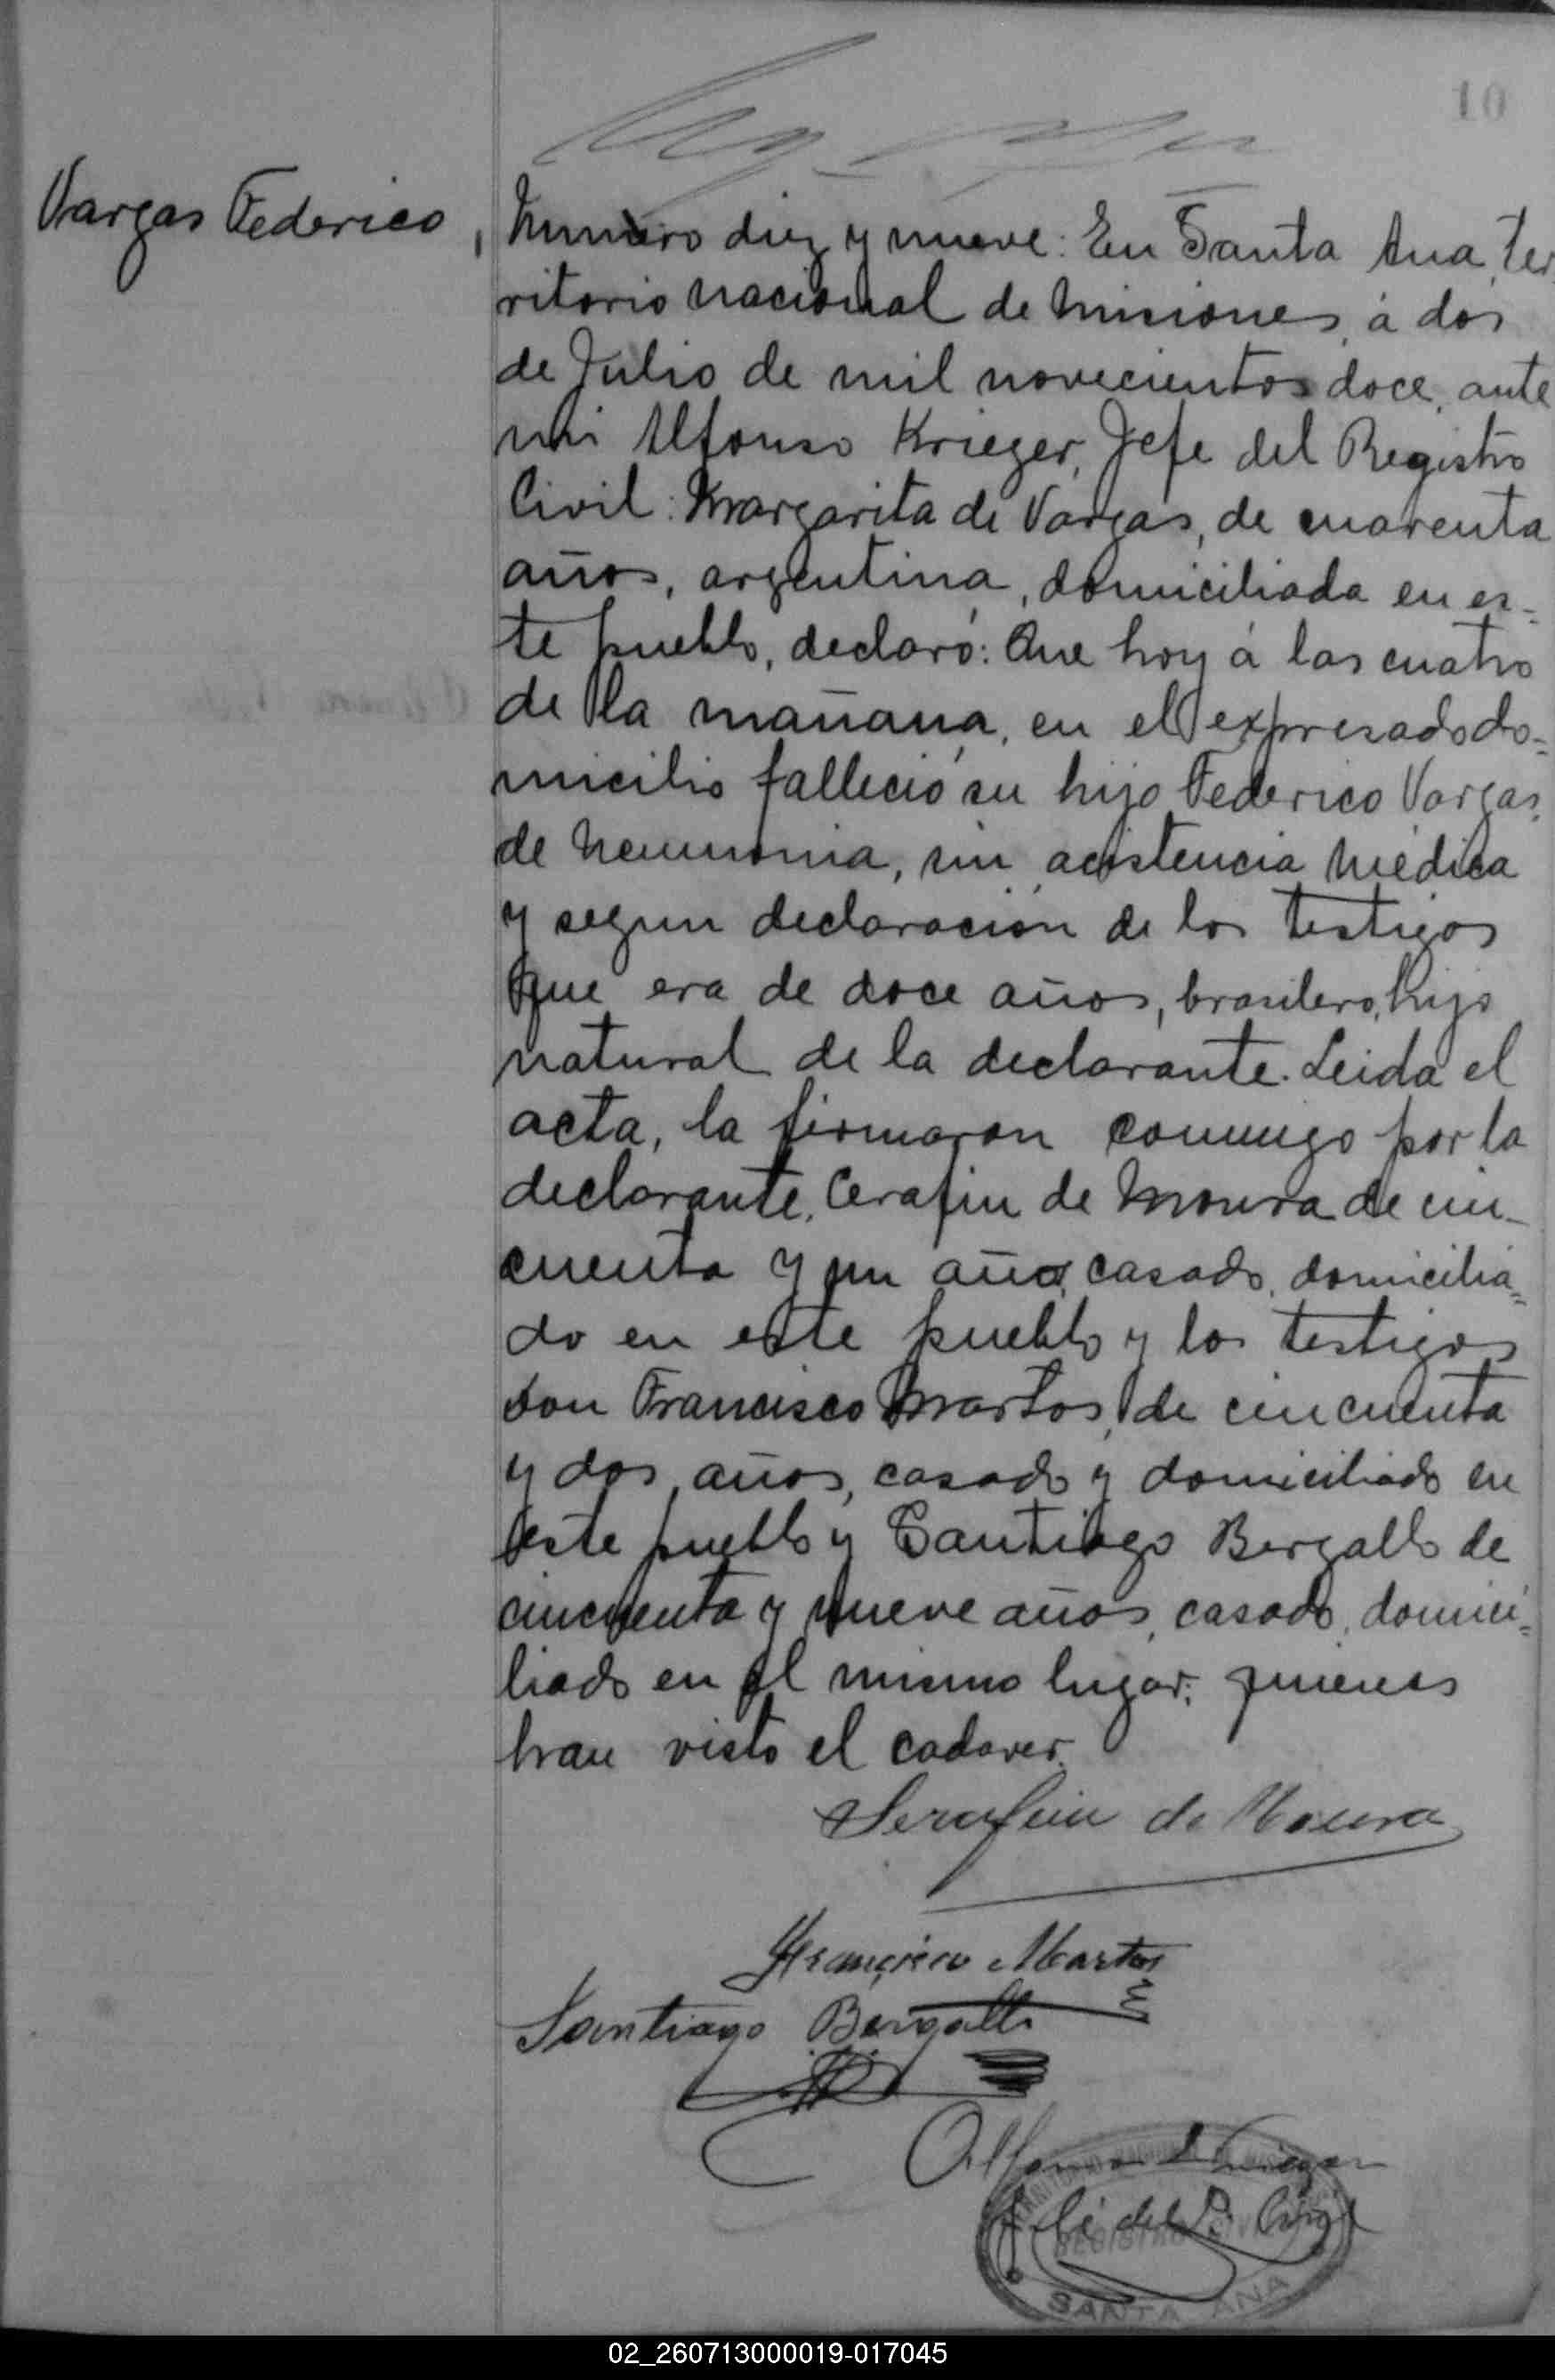 10
Vargas Federico,
Numero diez y nueve: En Santa Ana, ter
ritorio nacional de Misiones, á dos
de Julio de mil novecientos doce, ante
mi Alfonso Krieger, Jefe del Registro
Civil: Margarita de Vargas, de cuarenta
años, argentina, domiciliada en es-
te pueblo, declaró: Que hoy á las cuatro
de la mañana, en el expresado do=
micilio falleció su hijo Federico Vargas,
de neumonia, sin acistencia médica
y segun declaración de los testigos
que era de doce años, brasilero, hijo
natural de la declarante. Leida el
acta, la firmaron conmigo por la
declarante, Cerafin de Moura de cin-
cuenta y un año, casado, domicilia=
do en este pueblo y los testigos
don Francisco Martos, de cincuenta
y dos años, casado y domiciliado en
este pueblo y Santiago Bergallo de
cincuenta y nueve años, casado, domici=
liado en el mismo lugar; quienes
han visto el cadaver.
Serafin de Moura
Francisco Martos
Santiago Bergallo
Alfonso Krieger
Jefe del R. Civil
REGISTRO CIVIL
SANTA ANA
02_260713000019-017045